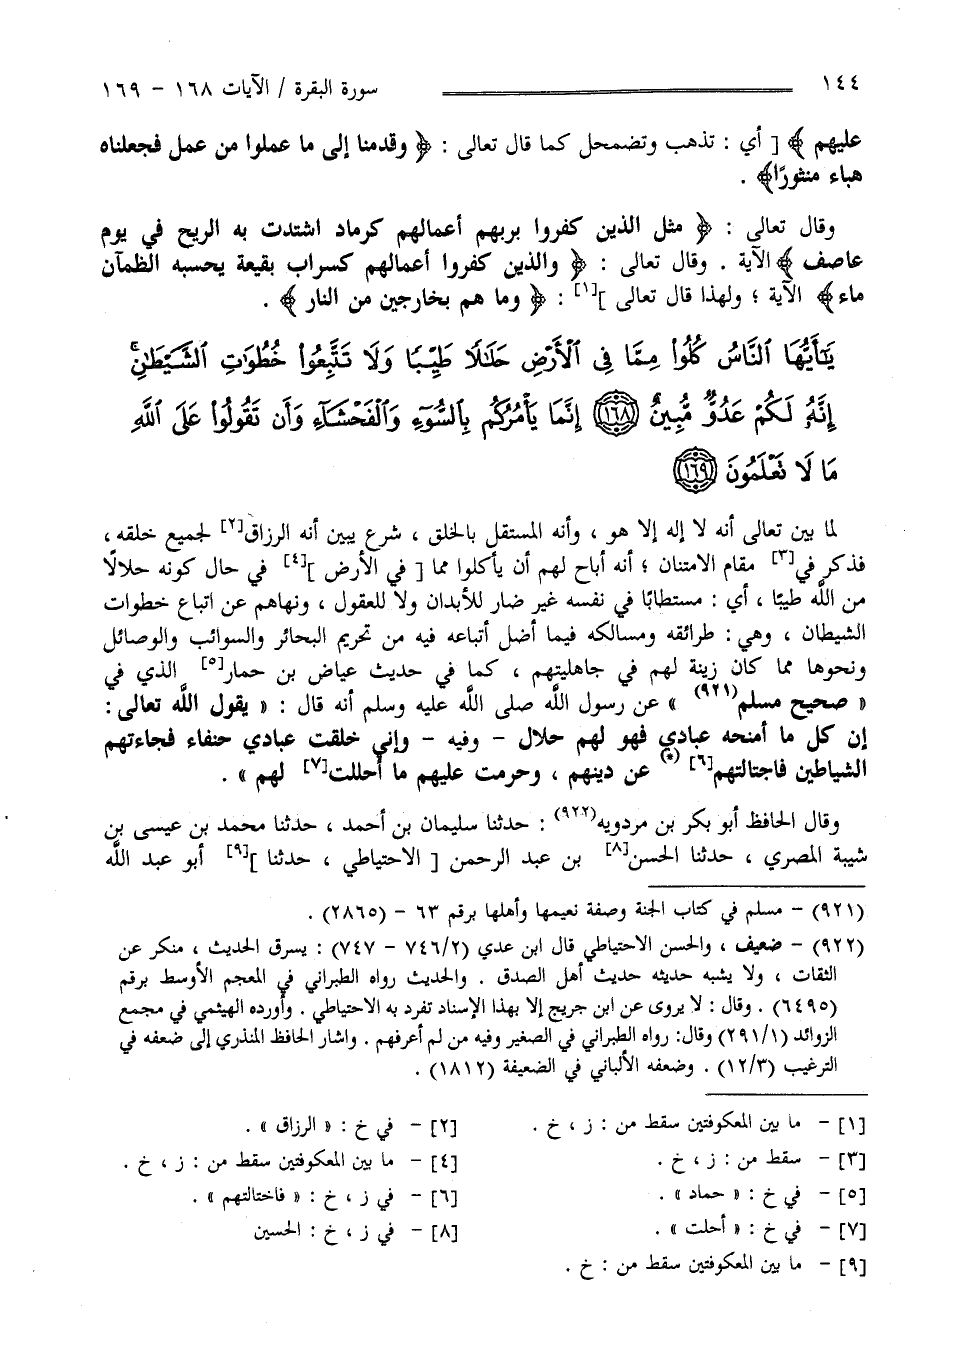 ١٤٤ سورة البقرة / الآيات ١٦٨ - ١٦٩
عليهم ﴾ [ أي : تذهب وتضمحل كما قال تعالى : ﴿ وقدمنا إلى ما عملوا من عمل فجعلناه
هباء منثورًا﴾ .
وقال تعالى : ﴿ مثل الذين كفروا بربهم أعمالهم كرماد اشتدت به الريح في يوم
عاصف ﴾ الآية . وقال تعالى : ﴿ والذين كفروا أعمالهم كسراب بقيعة يحسبه الظمآن
ماء﴾ الآية ؛ ولهذا قال تعالى ][١] : ﴿ وما هم بخارجين من النار ﴾ .
يَٰٓأَيُّهَا ٱلنَّاسُ كُلُوا۟ مِمَّا فِى ٱلْأَرْضِ حَلَٰلًا طَيِّبًا وَلَا تَتَّبِعُوا۟ خُطُوَٰتِ ٱلشَّيْطَٰنِ ۚ
إِنَّهُۥ لَكُمْ عَدُوٌّ مُّبِينٌ ﴿١٦٨﴾ إِنَّمَا يَأْمُرُكُم بِٱلسُّوٓءِ وَٱلْفَحْشَآءِ وَأَن تَقُولُوا۟ عَلَى ٱللَّهِ
مَا لَا تَعْلَمُونَ ﴿١٦٩﴾
لما بين تعالى أنه لا إله إلا هو ، وأنه المستقل بالخلق ، شرع يبين أنه الرزاق[٢] لجميع خلقه ،
فذكر في[٣] مقام الامتنان ؛ أنه أباح لهم أن يأكلوا مما [ في الأرض ][٤] في حال كونه حلالًا
من اللَّه طيبًا ، أي : مستطابًا في نفسه غير ضار للأبدان ولا للعقول ، ونهاهم عن اتباع خطوات
الشيطان ، وهي : طرائقه ومسالكه فيما أضل أتباعه فيه من تحريم البحائر والسوائب والوصائل
ونحوها مما كان زينة لهم في جاهليتهم ، كما في حديث عياض بن حمار[٥] الذي في
« صحيح مسلم(٩٢١) » عن رسول اللَّه صلى اللَّه عليه وسلم أنه قال : « يقول اللَّه تعالى :
إن كل ما أمنحه عبادي فهو لهم حلال - وفيه - وإني خلقت عبادي حنفاء فجاءتهم
الشياطين فاجتالتهم[٦] (*) عن دينهم ، وحرمت عليهم ما أحللت[٧] لهم » .
وقال الحافظ أبو بكر بن مردويه(٩٢٢) : حدثنا سليمان بن أحمد ، حدثنا محمد بن عيسى بن
شيبة المصري ، حدثنا الحسن[٨] بن عبد الرحمن [ الاحتياطي ، حدثنا ][٩] أبو عبد اللَّه
(٩٢١) - مسلم في كتاب الجنة وصفة نعيمها وأهلها برقم ٦٣ - (٢٨٦٥) .
(٩٢٢) - ضعيف ، والحسن الاحتياطي قال ابن عدي (٧٤٦/٢ - ٧٤٧) : يسرق الحديث ، منكر عن
الثقات ، ولا يشبه حديثه حديث أهل الصدق . والحديث رواه الطبراني في المعجم الأوسط برقم
(٦٤٩٥) . وقال : لا يروى عن ابن جريج إلا بهذا الإسناد تفرد به الاحتياطي . وأورده الهيثمي في مجمع
الزوائد (٢٩١/١) وقال: رواه الطبراني في الصغير وفيه من لم أعرفهم . واشار الحافظ المنذري إلى ضعفه في
الترغيب (١٢/٣) . وضعفه الألباني في الضعيفة (١٨١٢) .
[١] - ما بين المعكوفتين سقط من : ز ، خ . [٢] - في خ : « الرزاق » .
[٣] - سقط من : ز ، خ . [٤] - ما بين المعكوفتين سقط من : ز ، خ .
[٥] - في خ : « حماد » . [٦] - في ز ، خ : « فاختالتهم » .
[٧] - في خ : « أحلت » . [٨] - في ز ، خ : الحسين
[٩] - ما بين المعكوفتين سقط من : خ .